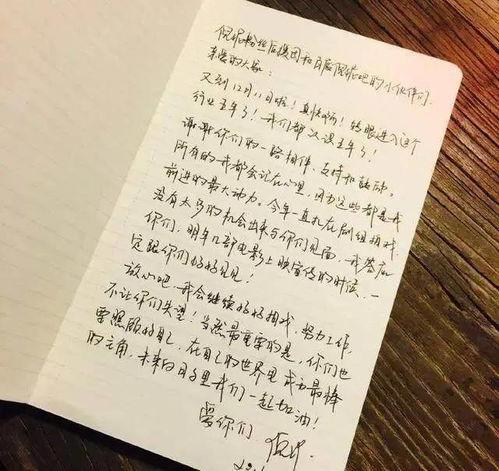 倪妮粉丝后援团和百度倪妮吧的小伙伴们:
亲爱的大家:
又到12月11日啦!真快啊!转眼进入这个
行业五年了!我们都认识五年了!
谢谢你们的一路相伴、支持和鼓励。
所有的我都会记在心里,因为这些都是我
前进的最大动力。今年一直扎在剧组拍戏
没有太多的机会出来与你们见面,我答应
你们,明年几部电影上映宣传的时候,一
定跟你们好好见见!
放心吧,我会继续好好拍戏,努力工作,
不让你们失望!当然最重要的是,你们也
要照顾好自己,在自己的世界里成为最棒
的主角,未来日子里我们一起加油!
爱你们 倪妮